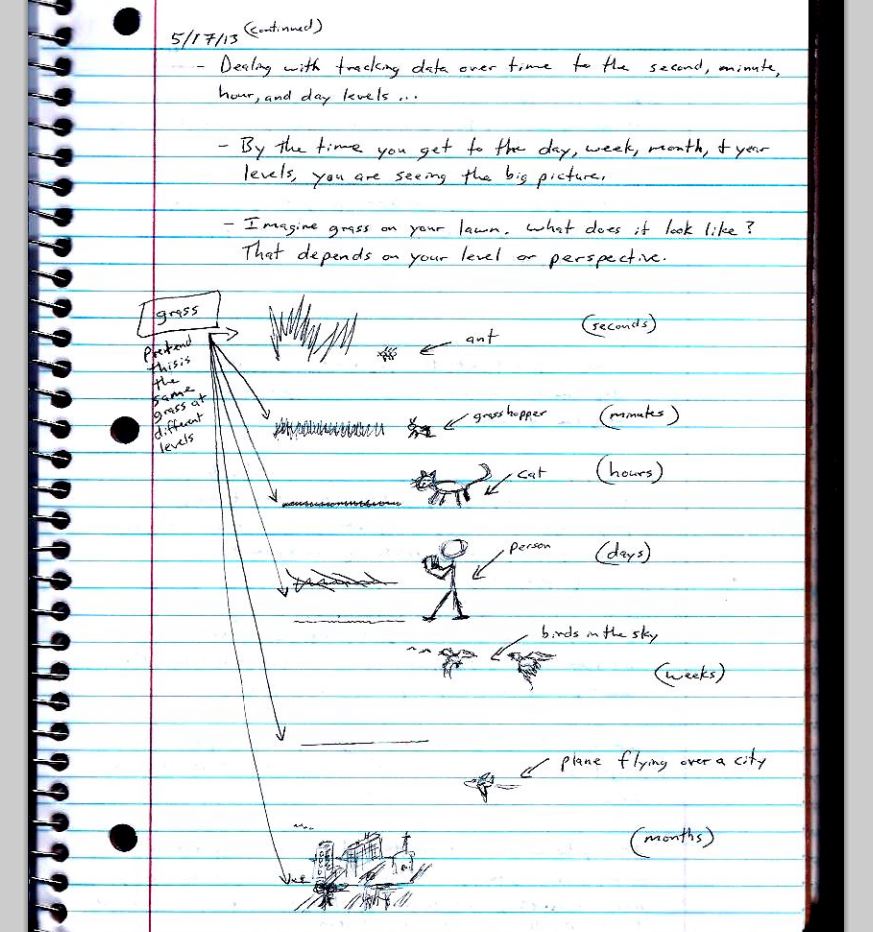 5/17/13 (continued)
- Dealing with tracking data over time to the second, minute,
hour, and day levels ...
- By the time you get to the day, week, month, + year
levels, you are seeing the big picture.
- Imagine grass on your lawn. What does it look like?
That depends on your level or perspective.
grass
Pretend
this is
the
same
grass at
different
levels
ant (seconds)
grasshopper (minutes)
cat (hours)
person (days)
birds in the sky
(weeks)
plane flying over a city
(months)